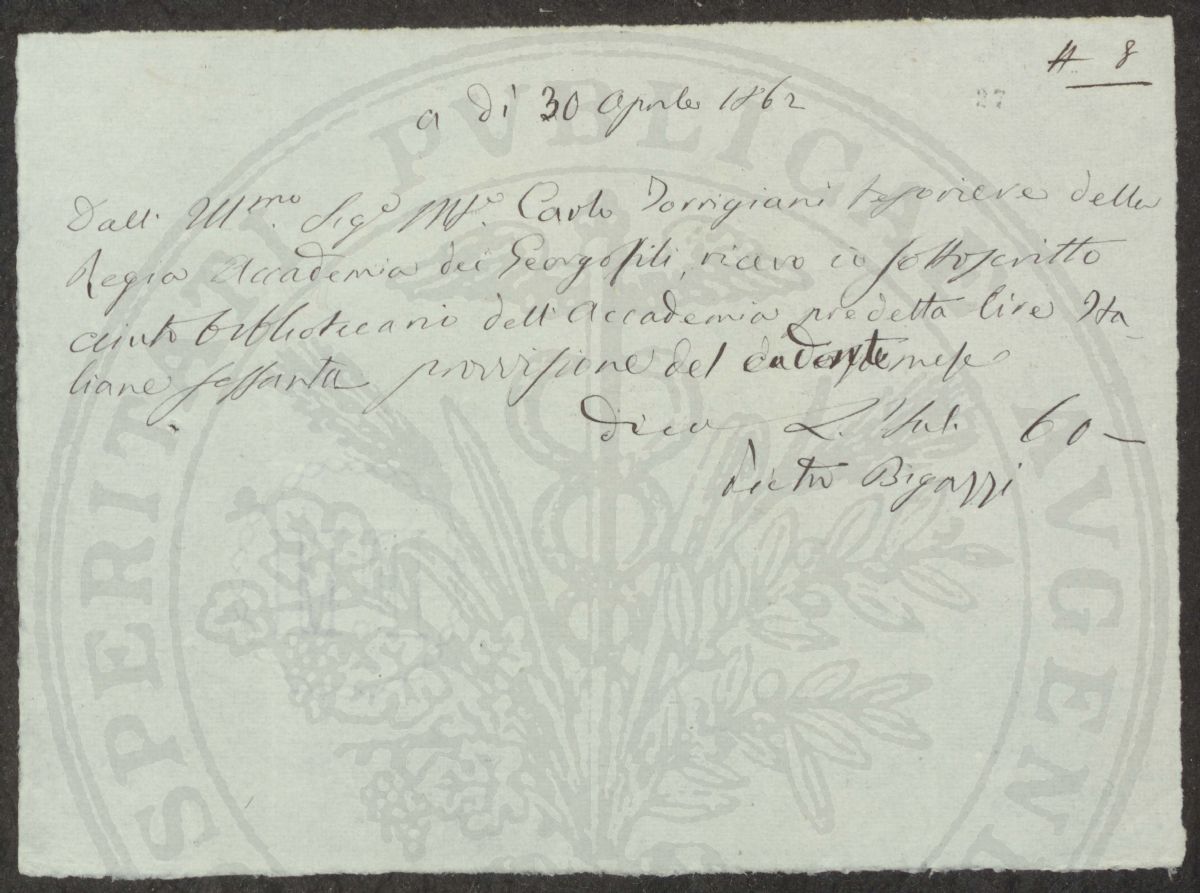 # 8
27
a dì 30 Aprile 1862
Dall' Ill.mo Sig.e M.se Carlo Torrigiani tesoriere della
Regia Accademia dei Georgofili, ricevo io sottoscritto
aiuto bibliotecario dell' Accademia predetta lire Ita
liane sessanta provvisione del cadente mese
dico L. Ital. 60 —
Pietro Bigazzi
SPERITATI PVBLICAE AVGEN